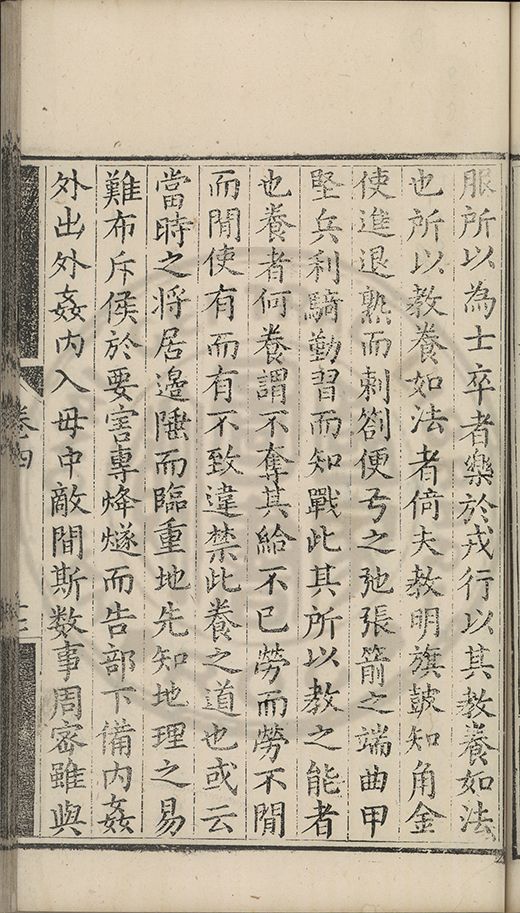 服所以為士卒者樂於戎行以其教養如法
也所以教養如法者倚夫教明旗鼓知角金
使進退熟而刺劄便弓之弛張箭之端曲甲
堅兵利騎勤習而知戰此其所以教之能者
也養者何養謂不奪其給不已勞而勞不閒
而閒使有而有不致違禁此養之道也或云
當時之将居邉陲而臨重地先知地理之易
難布斥候於要害專烽燧而告部下備内姦
外出外姦内入毋中敵間斯数事周密雖與
卷四